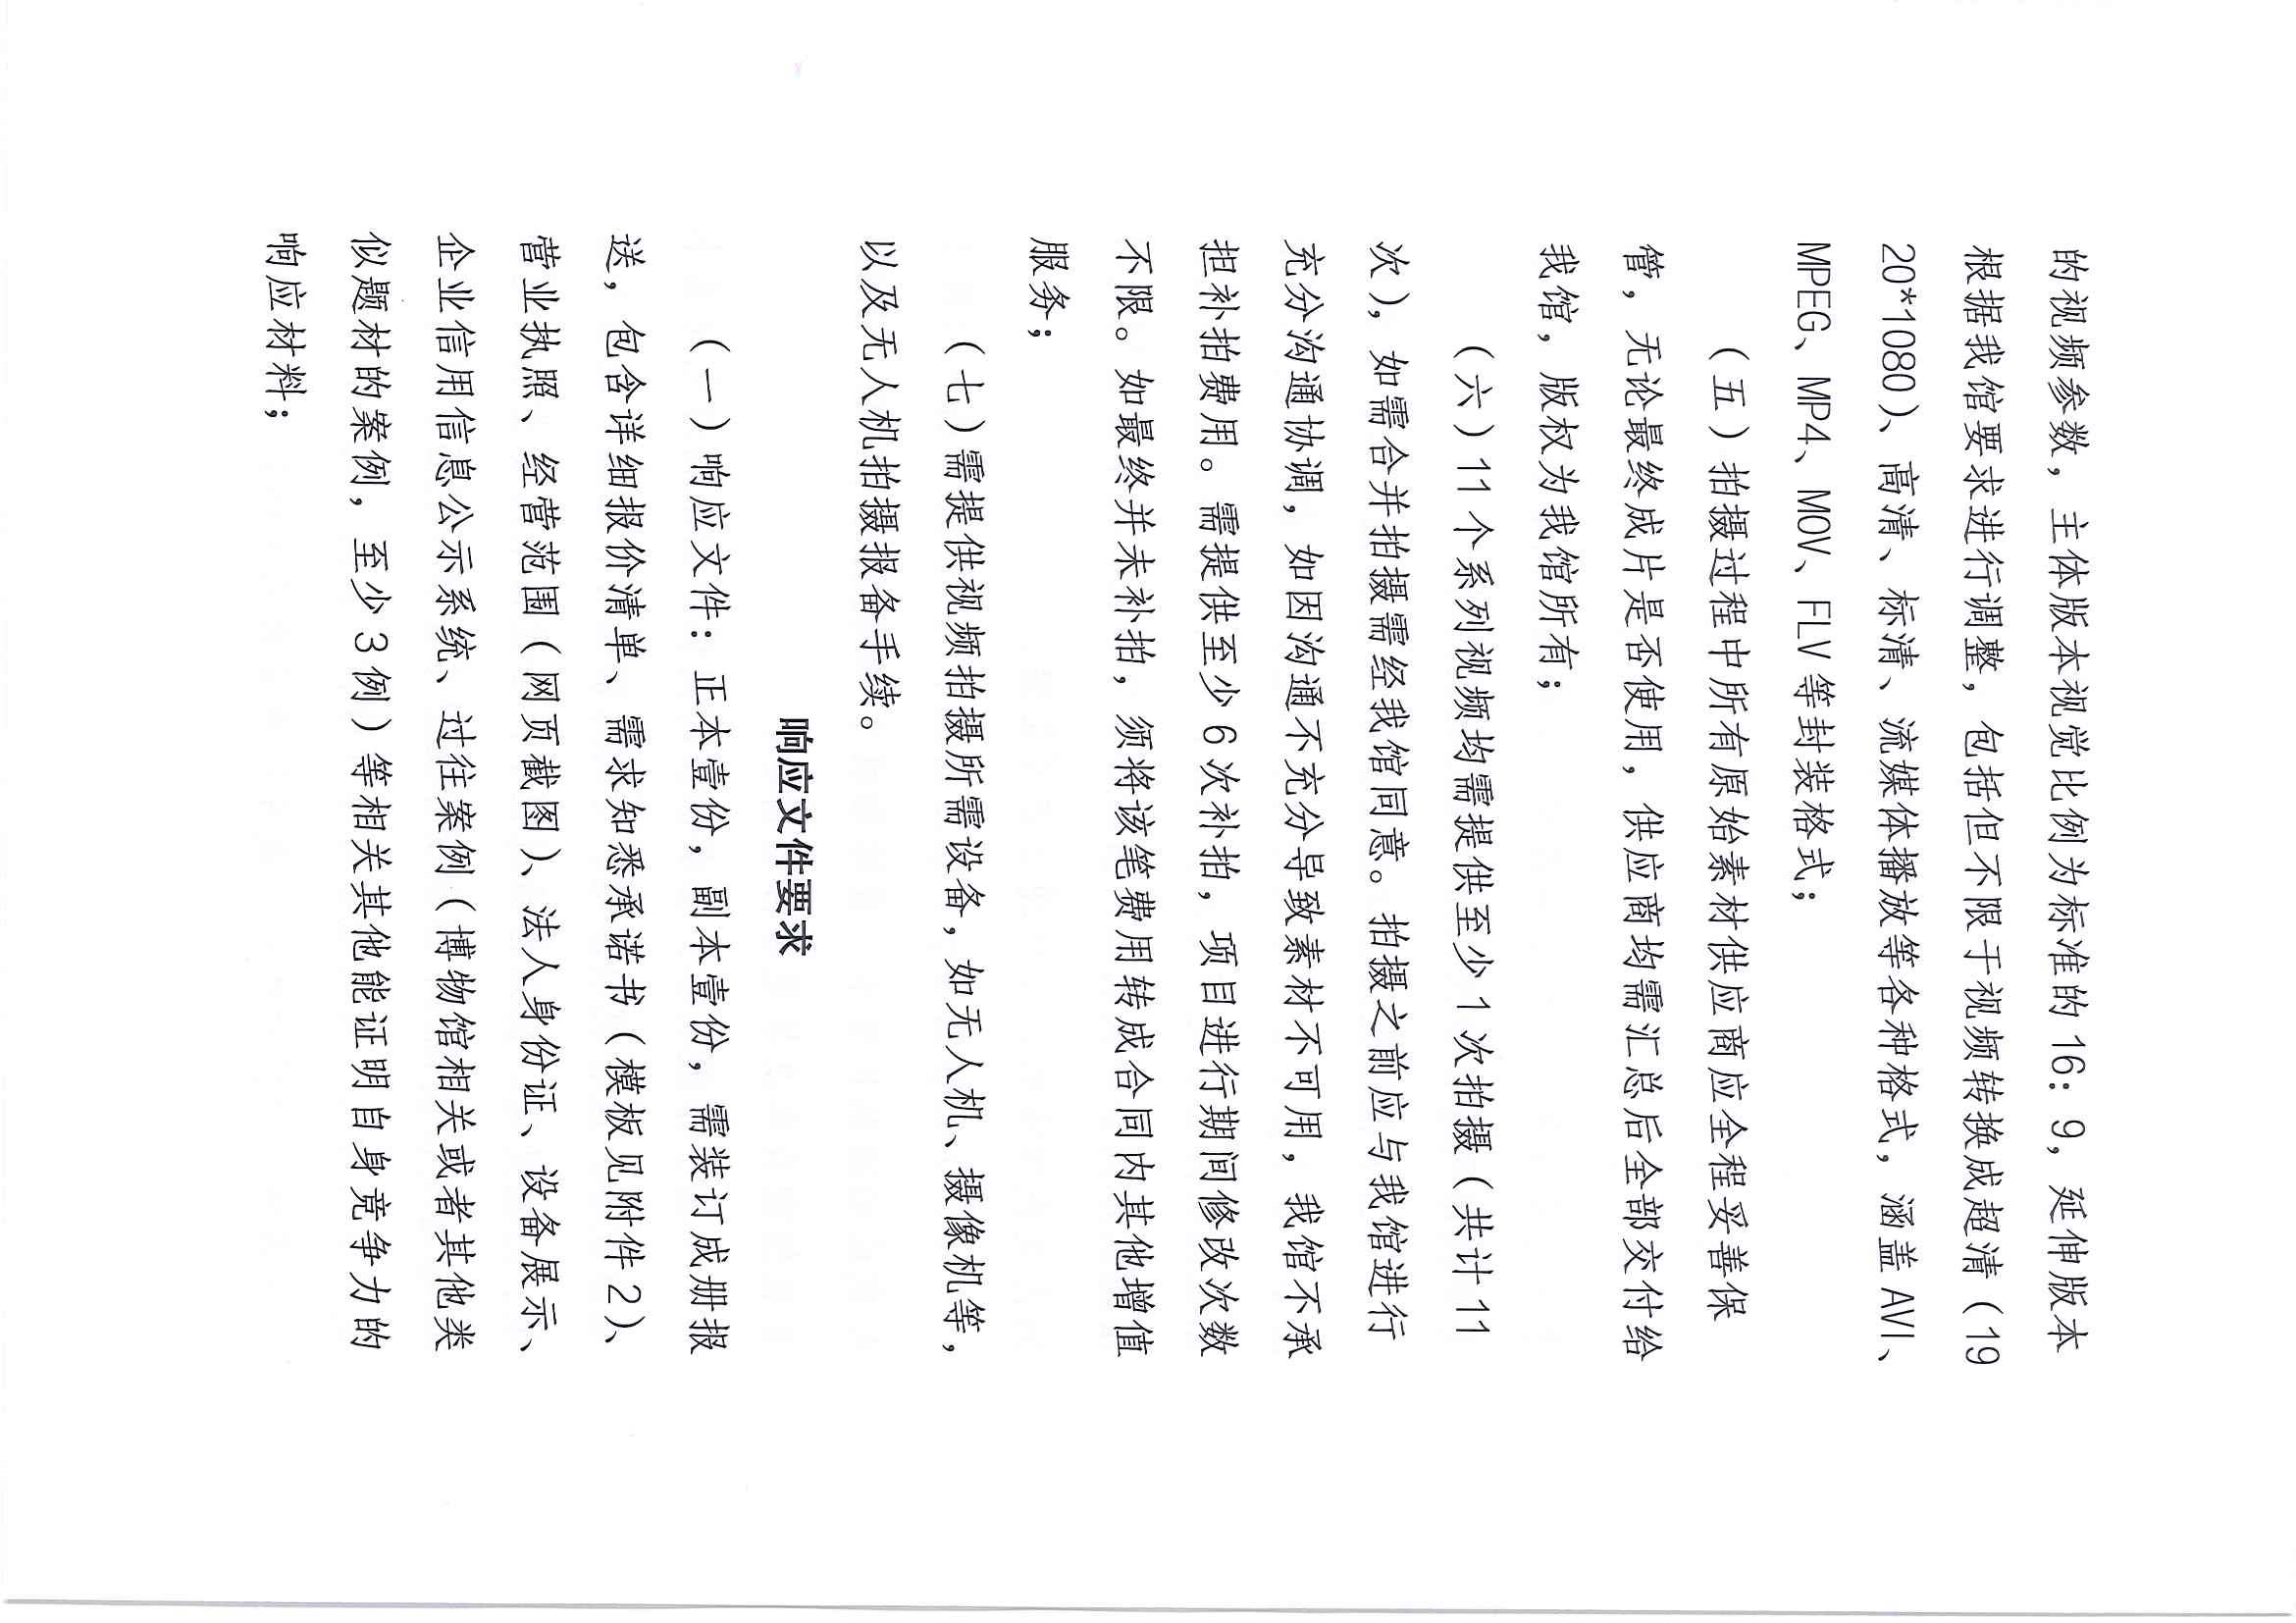 的视频参数，主体版本视觉比例为标准的 16：9，延伸版本
根据我馆要求进行调整，包括但不限于视频转换成超清（19
20*1080）、高清、标清、流媒体播放等各种格式，涵盖 AVI、
MPEG、MP4、MOV、FLV 等封装格式；
（五）拍摄过程中所有原始素材供应商应全程妥善保
管，无论最终成片是否使用，供应商均需汇总后全部交付给
我馆，版权为我馆所有；
（六）11 个系列视频均需提供至少 1 次拍摄（共计 11
次），如需合并拍摄需经我馆同意。拍摄之前应与我馆进行
充分沟通协调，如因沟通不充分导致素材不可用，我馆不承
担补拍费用。需提供至少 6 次补拍，项目进行期间修改次数
不限。如最终并未补拍，须将该笔费用转成合同内其他增值
服务；
（七）需提供视频拍摄所需设备，如无人机、摄像机等，
以及无人机拍摄报备手续。
响应文件要求
（一）响应文件：正本壹份，副本壹份，需装订成册报
送，包含详细报价清单、需求知悉承诺书（模板见附件 2）、
营业执照、经营范围（网页截图）、法人身份证、设备展示、
企业信用信息公示系统、过往案例（博物馆相关或者其他类
似题材的案例，至少 3 例）等相关其他能证明自身竞争力的
响应材料；